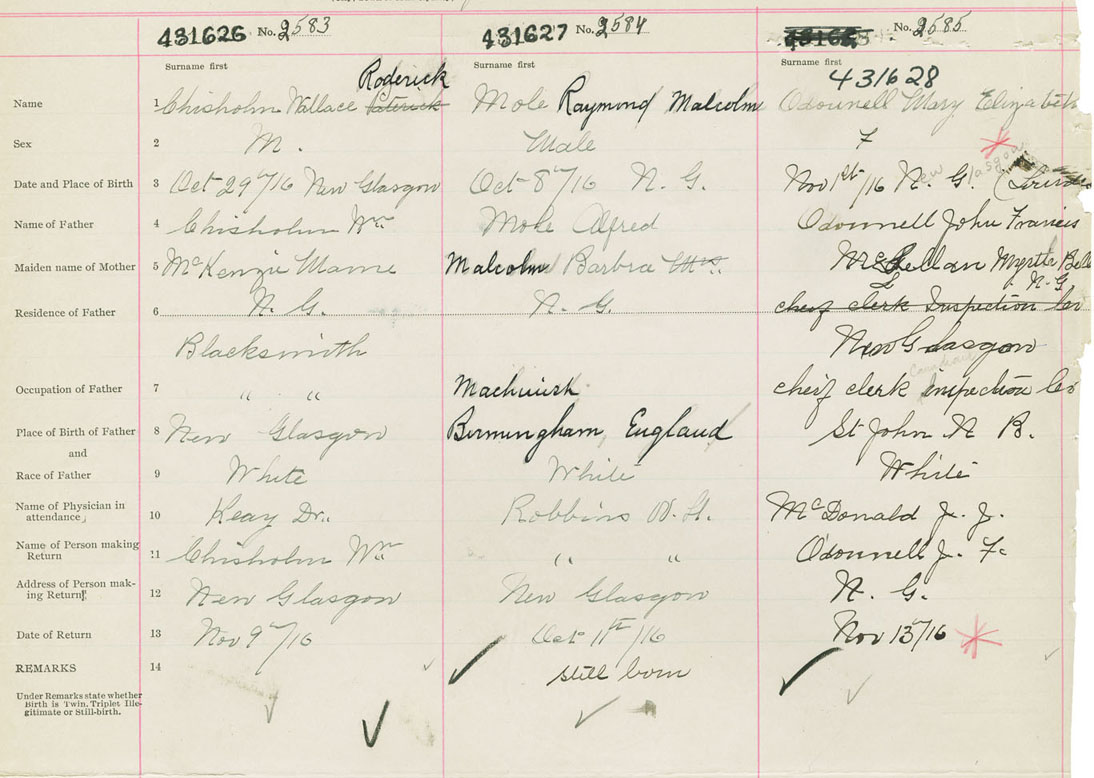 431626 No. 2583
431627 No. 2584
No. 2585
Surname first
Surname first
Surname first
431628
Roderick
Name 1 Chisholm Wallace Paterick
Mole Raymond Malcolm
Odonnell Mary Elizabeth
Sex 2 M.
Male
F
Date and Place of Birth 3 Oct 29th/16 New Glasgow
Oct 8th/16 N. G.
Nov 1st/16 N. G. New Glasgow
Name of Father 4 Chisholm Wm
Mole Alfred
Odonnell John Francis
Maiden name of Mother 5 McKenzie Mame
Malcolm Barbra Mrs.
McLellan Myrtle Bell
N. G.
Residence of Father 6 N. G.
N. G.
cheif clerk Inspection
Blacksmith
New Glasgow
Occupation of Father 7 " "
Machinist
cheif clerk inspection
Place of Birth of Father 8 New Glasgow
Birmingham, England
St John N. B.
and
Race of Father 9 White
White
White
Name of Physician in
attendance, 10 Keay Dr.
Robbins W. H.
McDonald J. J.
Name of Person making
Return 11 Chisholm Wm
" "
Odonnell J. F.
Address of Person mak-
ing Return 12 New Glasgow
New Glasgow
N. G.
Date of Return 13 Nov 9th/16
Oct 11th/16
Nov 13/16
REMARKS 14
still born
Under Remarks state whether
Birth is Twin. Triplet Ille-
gitimate or Still-birth.